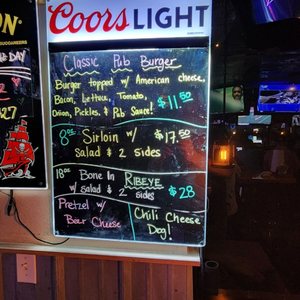 Coors LIGHT
Classic Pub Burger
Burger topped w/ American cheese,
Bacon, Lettuce, Tomato,
Onion, Pickles, & Pub Sauce! $11.50
8oz Sirloin w/ $17.50
salad & 2 sides
18oz Bone In RIBEYE
w/ salad & 2 sides $28
Pretzel w/
Beer Cheese
Chili Cheese
Dog!
ON
BUCCANEERS
DAY